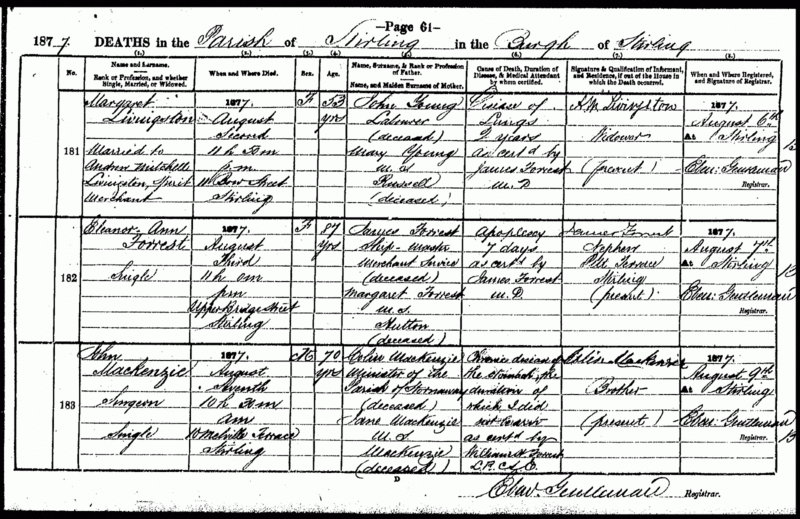 —Page 61—
1877 DEATHS in the Parish of Stirling in the Burgh of Stirling
(1.) (2.) (3.) (4.) (5.) (6.) (7.) (8.)
No.
Name and Surname.
Rank or Profession, and whether
Single, Married, or Widowed.
When and Where Died.
Sex.
Age.
Name, Surname, & Rank or Profession
of Father.
Name, and Maiden Surname of Mother.
Cause of Death, Duration of
Disease, & Medical Attendant
by whom certified.
Signature & Qualification of Informant,
and Residence, if out of the House in
which the Death occurred.
When and Where Registered,
and Signature of Registrar.
181
Margaret
Livingston
Married to
Andrew Mitchell
Livingston, Spirit
Merchant
1877.
August
Second
11 h 30 m
p.m.
Bow Street
Stirling
F
53
yrs
John Young
Labourer
(deceased)
Mary Young
m.s
Russell
(deceased)
Disease of
Lungs
2 years
as certd by
James Forrest
M.D
A M Livingston
Widower
(present)
1877.
August 6th
At Stirling
Ebenr Gentleman
Registrar.
182
Eleanor Ann
Forrest
Single
1877.
August
Third
11 h 0 m
p.m
Upper Bridge Street
Stirling
F
87
yrs
James Forrest
Ship-Master
Merchant Service
(deceased)
Margaret Forrest
m.s.
Hutton
(deceased)
Apoplexy
7 days
as certd by
James Forrest
M.D.
James Forrest
Nephew
Pitt Terrace
Stirling
(present)
1877.
August 7th
At Stirling
Ebenr Gentleman
Registrar.
183
John
Mackenzie
Surgeon
Single
1877.
August
Seventh
10 h 30 m
am
10 Melville Terrace
Stirling
M
70
yrs
Colin Mackenzie
Minister of the
Parish of Stornaway
(deceased)
Jane Mackenzie
m.s
Mackenzie
(deceased)
Chronic disease of
the Stomach, the
duration of
which I did
not learn
as certd by
William H. Forrest
L.R.C.S.E.
Colin Mackenzie
Brother
(present)
1877.
August 9th
At Stirling
Ebenr Gentleman
Registrar.
D
Ebenr Gentleman Registrar.